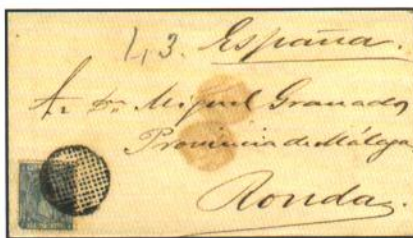 1,3. España.
A Dn Miguel Granados
Provincia de Málaga
Ronda.